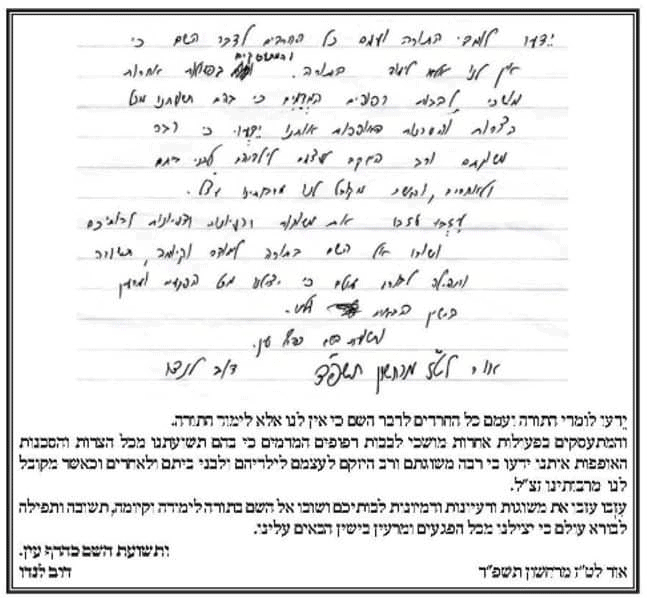 יֵדעו לומדי התורה ועמם כל החרדים לדבר השם כי
אין לנו אלא לימוד התורה. והמתעסקים בפעולות אחרות
מושכי לבבות רפופים המדמים כי בהם תשועתנו מכל
הצרות והסכנות האופפות אותנו יֵדעו כי רבה
משוגתם ורב היזקם לעצמם לילדיהם ולבני ביתם
ולאחרים, וכאשר מקובל לנו מרבותינו זצ"ל.
עִזבו עזבו את משוגות ורעיונות ודמיונות לבותיכם
ושובו אל השם בתורה לימודה וקיומה, תשובה
ותפילה לבורא עולם כי יצילנו מכל הפגעים ומרעין
בישין הבאים עלינו.
ותשועת השם כהרף עין.
אור לט"ז מרחשון תשפ"ד דוב לנדו
יֵדעו לומדי התורה ועמם כל החרדים לדבר השם כי אין לנו אלא לימוד התורה.
והמתעסקים בפעולות אחרות מושכי לבבות רפופים המדמים כי בהם תשועתנו מכל הצרות והסכנות
האופפות איתנו ידעו כי רבה משוגתם ורב היזקם לעצמם לילדיהם ולבני ביתם ולאחרים וכאשר מקובל
לנו מרבותינו זצ"ל.
עִזבו עזבו את משוגות ורעיונות ודמיונות לבותיכם ושובו אל השם בתורה לימודה וקיומה, תשובה ותפילה
לבורא עולם כי יצילנו מכל הפגעים ומרעין בישין הבאים עלינו.
ותשועת השם כהרף עין.
אור לט"ז מרחשון תשפ"ד דוב לנדו